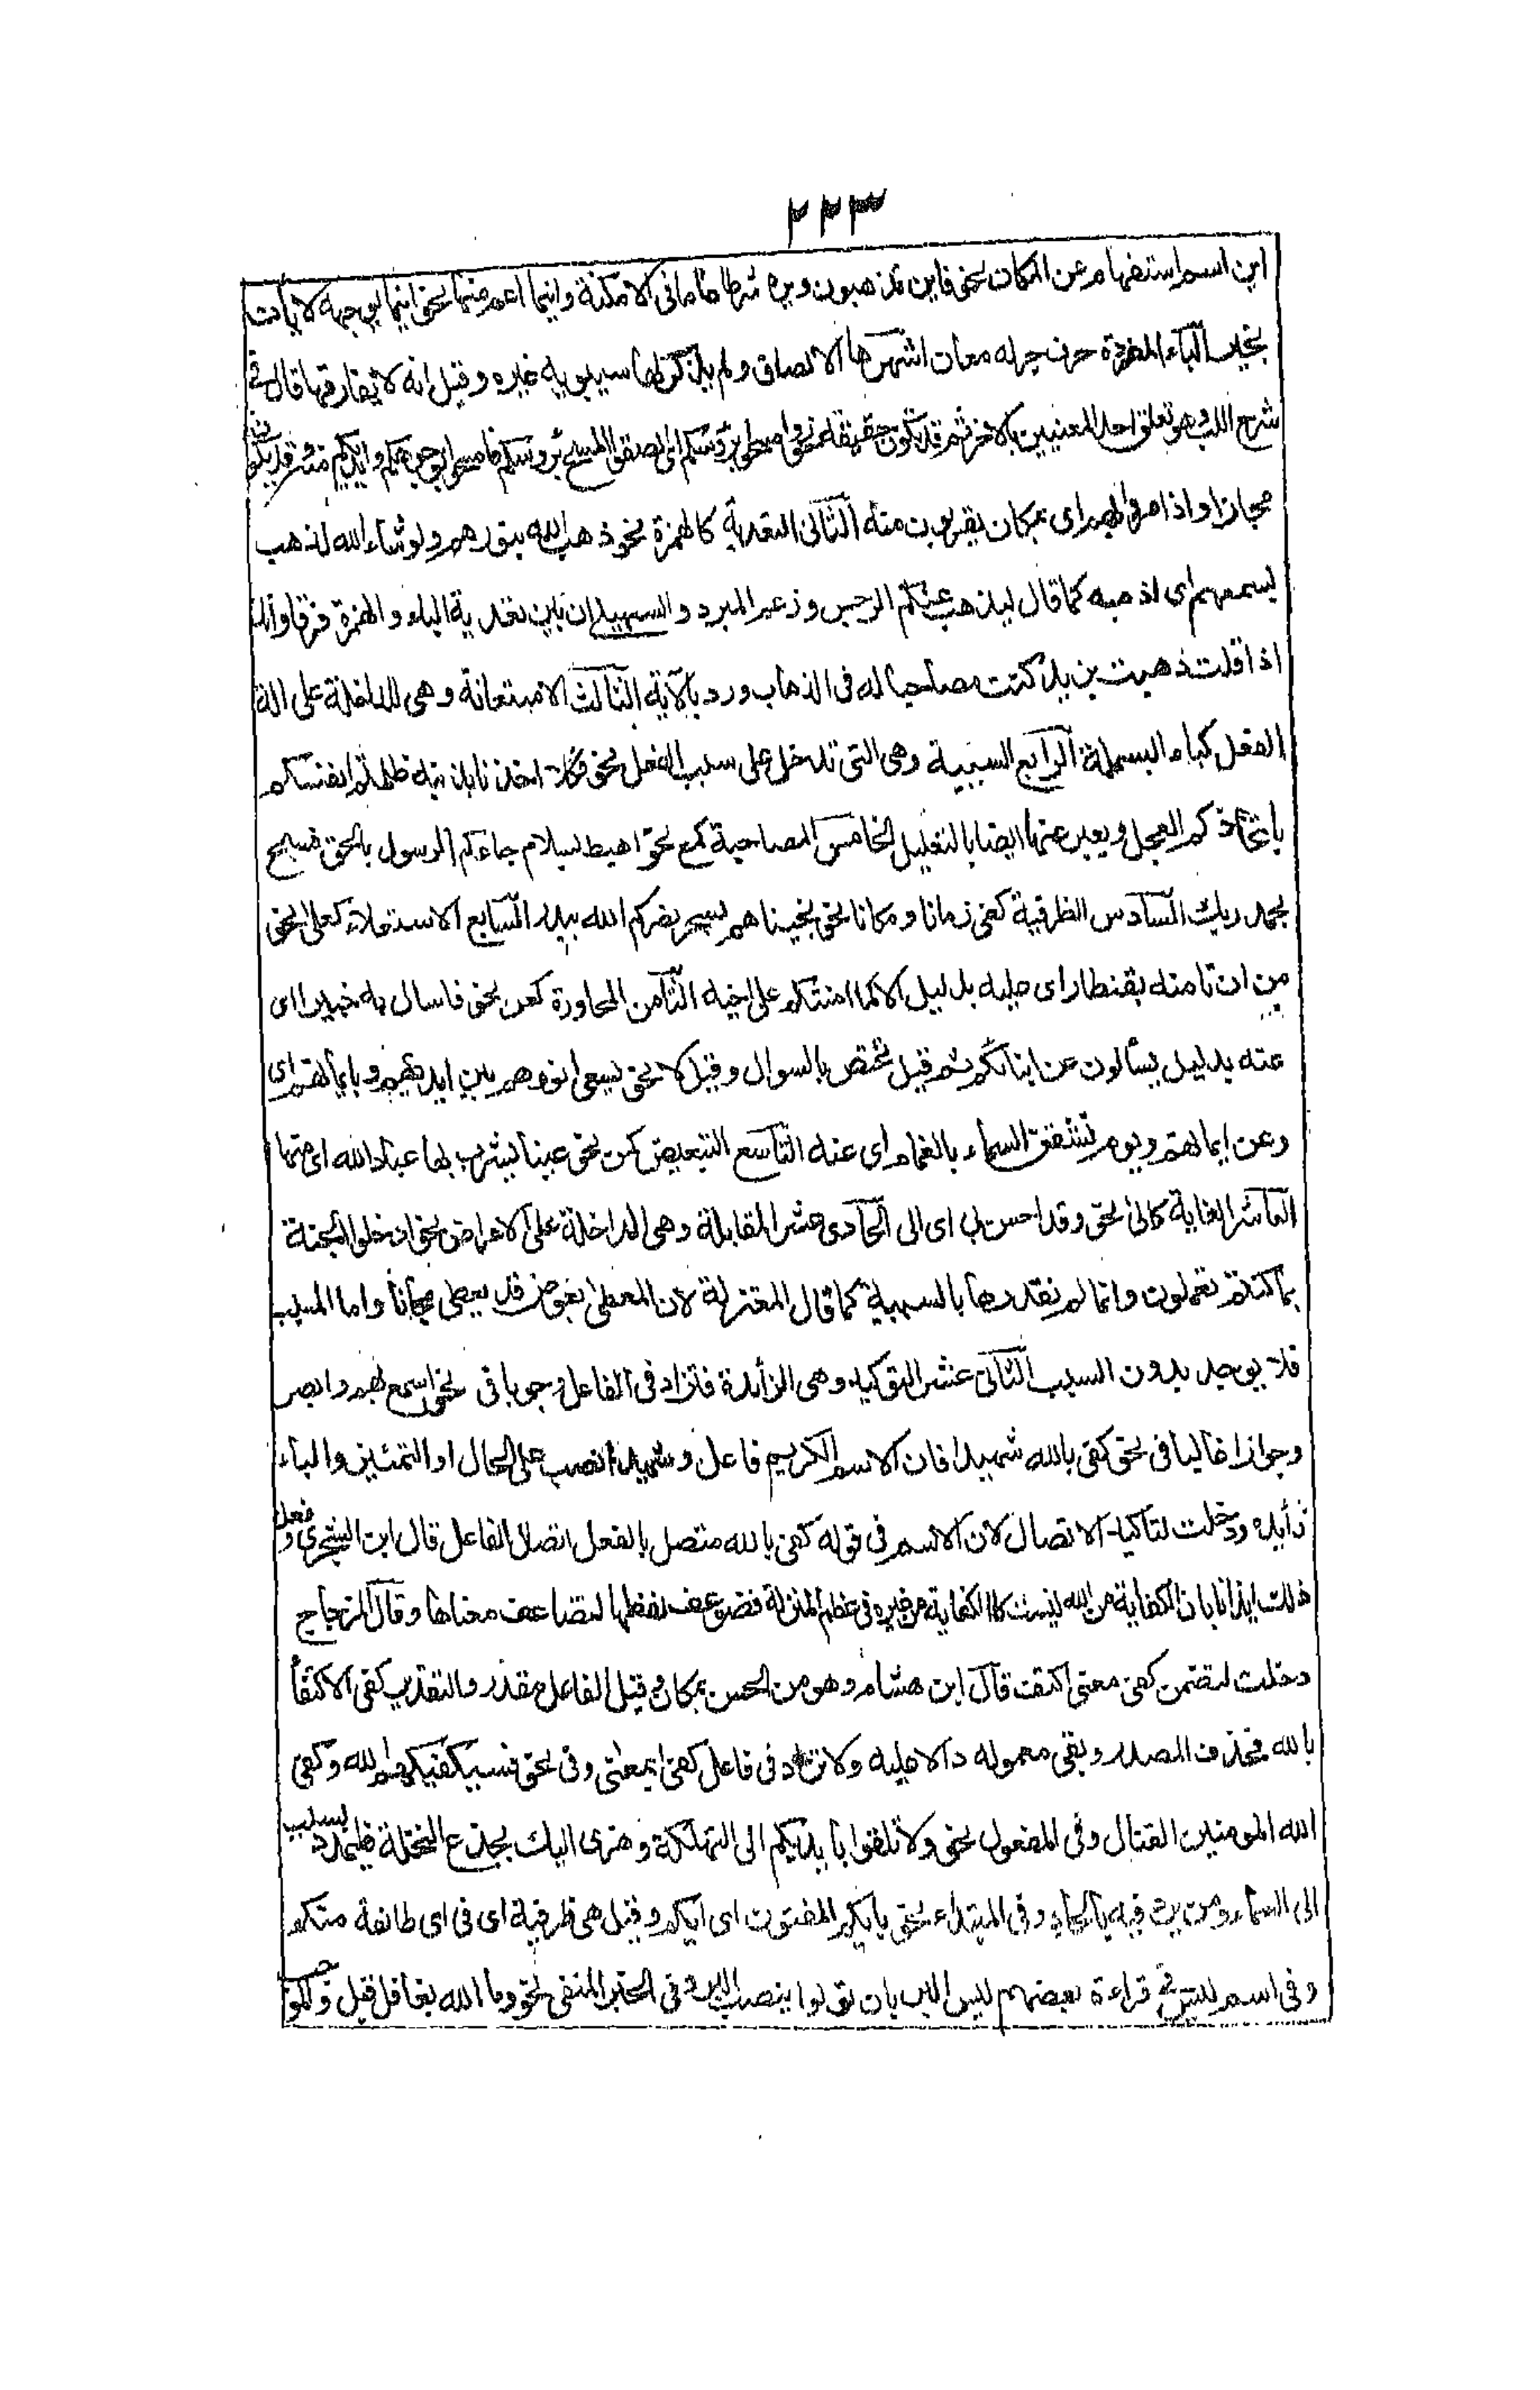 ٢٢٣
اين اسم استفهام عن المكان نحو فاين تذهبون ويرد شرطا عاما في الامكنة واينما اعم منها نحو اينما يوجهه لا يأت
بخير الباء المفردة حرف جر له معان اشهرها الالصاق ولم يذكر لها سيبويه غيره وقيل انه لا يفارقها قال في
شرح اللب وهو تعلق احد المعنيين بالاخر ثم قد يكون حقيقة نحو وامسحوا برؤسكم اى الصقوا المسح برؤسكم فامسحوا بوجوهكم وايديكم منه وقد يكون
مجازا واذا مروا بهم اى بمكان يقربون منه الثانى التعدية كالهمزة نحو ذهب الله بنورهم ولو شاء الله لذهب
بسمعهم اى اذهبه كما قال ليذهب عنكم الرجس وزعم المبرد والسهيلى ان بين تعدية الباء والهمزة فرقا وانك
اذا قلت ذهبت بزيد كنت مصاحبا له فى الذهاب ورد بالآية الثالث الاستعانة وهى الداخلة على الة
الفعل كباء البسملة الرابع السببية وهى التى تدخل على سبب الفعل نحو فكلا اخذنا بذنبه ظلمتم انفسكم
باتخاذكم العجل ويعبر عنها ايضا بالتعليل الخامس المصاحبة كمع نحو اهبط بسلام جاءكم الرسول بالحق فسبح
بحمد ربك السادس الظرفية كفى زمانا ومكانا نحو نجيناهم بسحر نصركم الله ببدر السابع الاستعلاء كعلى نحو
من ان تامنه بقنطار اى عليه بدليل الا كما امنتكم على اخيه الثامن المجاورة كعن نحو فاسال به خبيرا اى
عنه بدليل يسألون عن انبائكم ثم قيل تختص بالسوال وقيل لا نحو يسعى نورهم بين ايديهم وبايمانهم اى
وعن ايمانهم ويوم تشقق السماء بالغمام اى عنه التاسع التبعيض كمن نحو عينا يشرب بها عباد الله اى منها
العاشر الغاية كالى نحو وقد احسن بى اى الى الحادى عشر المقابلة وهى الداخلة على الاعواض نحو ادخلوا الجنة
بما كنتم تعملون وانما لم نقدرها بالسببية كما قال المعتزلة لان المعطى بعوض قد يعطى مجانا واما المسبب
فلا يوجد بدون السبب الثانى عشر التوكيد وهى الزائدة فتزاد فى الفاعل وجوبا فى نحو اسمع بهم وابصر
وجوازا غالبا فى نحو كفى بالله شهيدا فان الاسم الكريم فاعل وشهيدا نصب على الحال او التمييز والباء
زايده ودخلت لتاكيد الاتصال لان الاسم فى قوله كفى بالله متصل بالفعل اتصال الفاعل قال ابن الشجرى وفعل
ذلك ايذانا بان الكفاية من الله ليست كالكفاية من غيره فى عظم المنزلة فضوعف لفظها لتضاعف معناها وقال الزجاج
دخلت لتضمن كفى معنى اكتف قال ابن هشام وهو من الحسن بمكان وقيل الفاعل مقدر والتقدير كفى الاكتفأ
بالله فحذف المصدر وبقى معموله دالا عليه ولا تزاد فى فاعل كفى بمعنى وقى نحو فسيكفيكهم الله وكفى
الله المومنين القتال وفى المفعول نحو ولا تلقوا بايديكم الى التهلكة وهزى اليك بجذع النخلة فليمدد بسبب
الى السماء ومن يرد فيه بالحاد وفى المبتداء نحو بايكم المفتون اى ايكم وقيل هى ظرفية اى فى اى طائفة منكم
وفى اسم ليس فى قراءة بعضهم ليس البر بان تولوا بنصب البر وفى الخبر المنفى نحو وما الله بغافل قيل والموجب